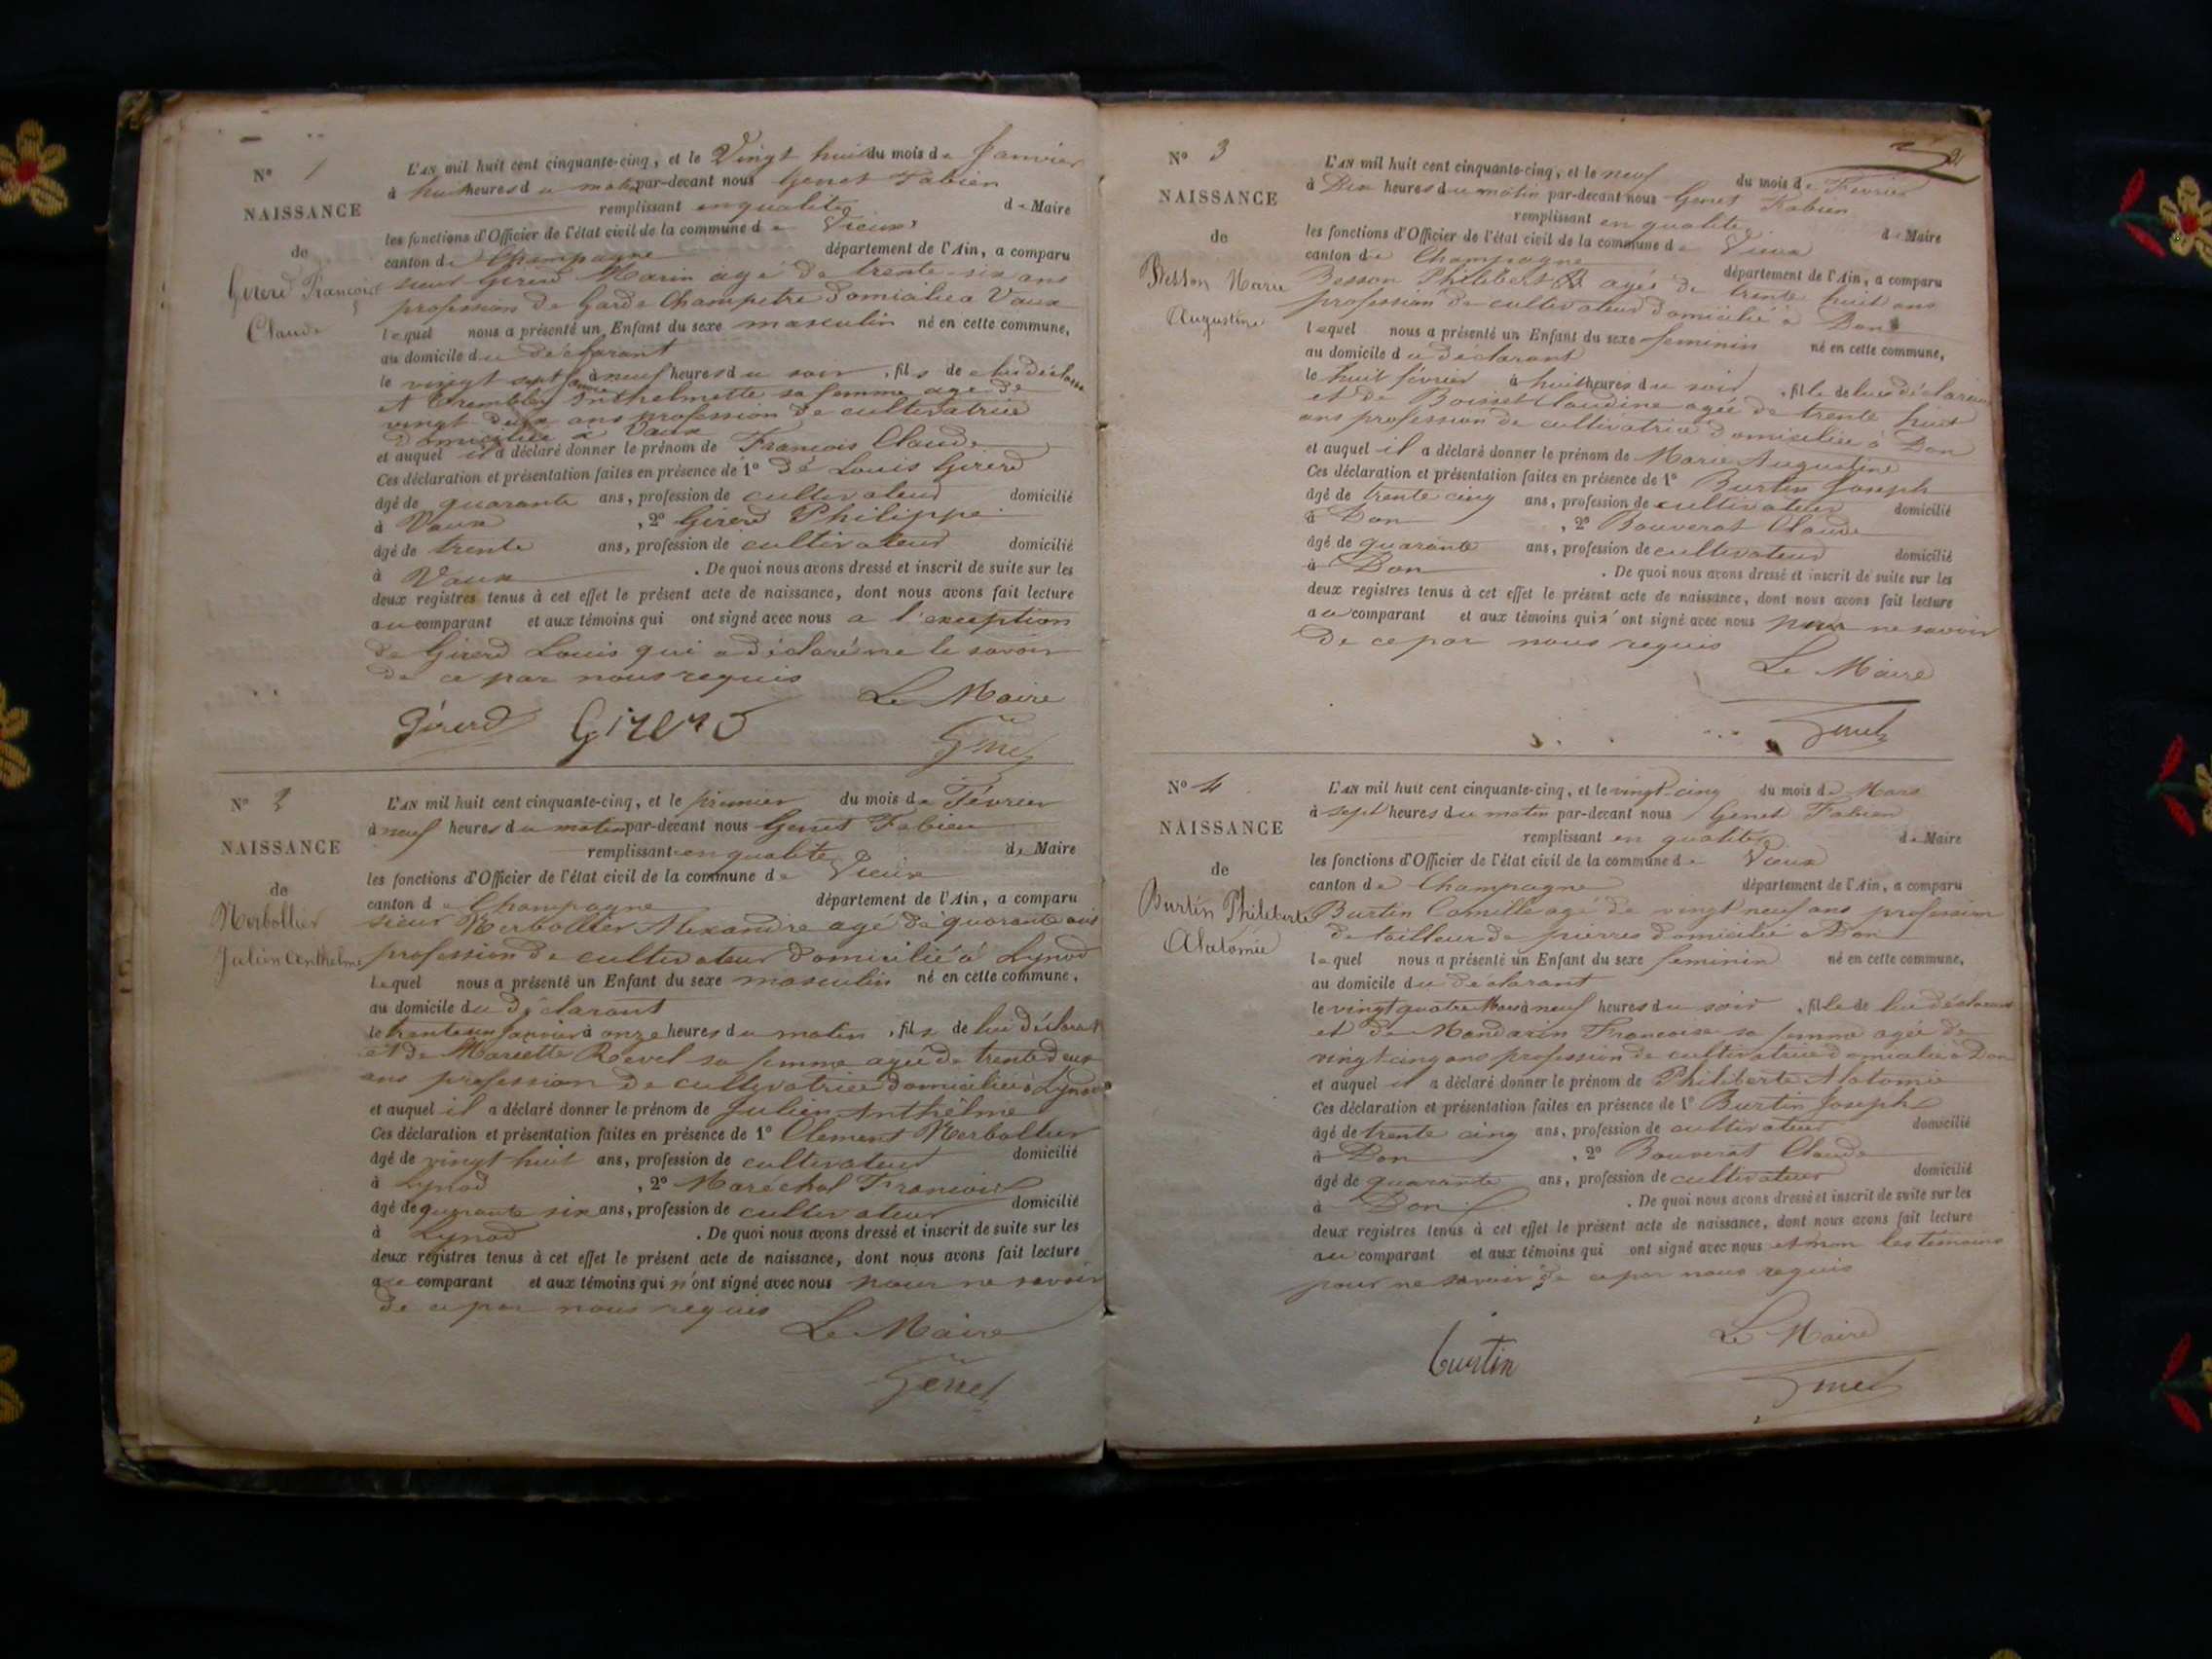 N° 1
NAISSANCE
de
Girerd François
Claude
L'AN mil huit cent cinquante-cinq, et le Vingt huit du mois de Janvier
à huit heures du matin par-devant nous Genet Fabien
remplissant en qualité de Maire
les fonctions d'Officier de l'état civil de la commune de Vieux
canton de Champagne département de l'Ain, a comparu
sieur Girerd Marin agé de trente-six ans
profession de Garde Champetre domicilié a Vaux
lequel nous a présenté un Enfant du sexe masculin né en cette commune,
au domicile du déclarant
le vingt sept à neuf heures du soir, fils de lui déclarant
et Trembley Anthelmette sa femme age de
vingt deux ans profession de cultivatrice
domiciliée a Vaux
et auquel il a déclaré donner le prénom de François Claude
Ces déclaration et présentation faites en présence de 1° de Louis Girerd
âgé de quarante ans, profession de cultivateur domicilié
à Vaux, 2° Girerd Philippe
âgé de trente ans, profession de cultivateur domicilié
à Vaux. De quoi nous avons dressé et inscrit de suite sur les
deux registres tenus à cet effet le présent acte de naissance, dont nous avons fait lecture
au comparant et aux témoins qui ont signé avec nous a l'exception
de Girerd Louis qui a déclaré ne le savoir
de ce par nous requis
Le Maire
Girerd Girerd Genet
N° 2
NAISSANCE
de
Merbollier
Julien Anthelme
L'AN mil huit cent cinquante-cinq, et le premier du mois de Février
à neuf heures du matin par-devant nous Genet Fabien
remplissant en qualité de Maire
les fonctions d'Officier de l'état civil de la commune de Vieux
canton de Champagne département de l'Ain, a comparu
sieur Merbollier Alexandre agé de quarante ans
profession de cultivateur domicilié à Lynod
lequel nous a présenté un Enfant du sexe masculin né en cette commune,
au domicile du déclarant
le trente un Janvier à onze heures du matin, fils de lui déclarant
et de Mariette Revel sa femme agée de trente deux
ans profession de cultivatrice domiciliée à Lynod
et auquel il a déclaré donner le prénom de Julien Anthelme
Ces déclaration et présentation faites en présence de 1° Clement Merbollier
âgé de vingt huit ans, profession de cultivateur domicilié
à Lynod, 2° Maréchal François
âgé de quarante six ans, profession de cultivateur domicilié
à Lynod. De quoi nous avons dressé et inscrit de suite sur les
deux registres tenus à cet effet le présent acte de naissance, dont nous avons fait lecture
au comparant et aux témoins qui n'ont signé avec nous pour ne savoir
de ce par nous requis
Le Maire
Genet
N° 3
NAISSANCE
de
Besson Marie
Augustine
L'AN mil huit cent cinquante-cinq, et le neuf du mois de Fevrier
à Dix heures du matin par-devant nous Genet Fabien
remplissant en qualité de Maire
les fonctions d'Officier de l'état civil de la commune de Vieux
canton de Champagne département de l'Ain, a comparu
Besson Philibert agée de trente huit ans
profession de cultivateur domicilié à Don
lequel nous a présenté un Enfant du sexe feminin né en cette commune,
au domicile du déclarant
le huit février à huit heures du soir, fille de lui déclarant
et de Boisset Claudine agée de trente huit
ans profession de cultivatrice domiciliée à Don
et auquel il a déclaré donner le prénom de Marie Augustine
Ces déclaration et présentation faites en présence de 1° Burtin Joseph
âgé de trente cinq ans, profession de cultivateur domicilié
à Don, 2° Bouverat Claude
âgé de quarante ans, profession de cultivateur domicilié
à Don. De quoi nous avons dressé et inscrit de suite sur les
deux registres tenus à cet effet le présent acte de naissance, dont nous avons fait lecture
au comparant et aux témoins qui n'ont signé avec nous pour ne savoir
de ce par nous requis
Le Maire
Genet
N° 4
NAISSANCE
de
Burtin Philiberte
Alatomie
L'AN mil huit cent cinquante-cinq, et le vingt-cinq du mois de Mars
à sept heures du matin par-devant nous Genet Fabien
remplissant en qualité de Maire
les fonctions d'Officier de l'état civil de la commune de Vieux
canton de Champagne département de l'Ain, a comparu
Burtin Camille agé de vingt neuf ans profession
de tailleur de pierres domicilié a Don
lequel nous a présenté un Enfant du sexe feminin né en cette commune,
au domicile du déclarant
le vingt quatre Mars à neuf heures du soir, fille de lui déclarant
et de Mandarin Françoise sa femme agée de
vingt cinq ans profession de cultivatrice domiciliée à Don
et auquel il a déclaré donner le prénom de Philiberte Alatomie
Ces déclaration et présentation faites en présence de 1° Burtin Joseph
âgé de trente cinq ans, profession de cultivateur domicilié
à Don, 2° Bouverat Claude
âgé de quarante ans, profession de cultivateur domicilié
à Don. De quoi nous avons dressé et inscrit de suite sur les
deux registres tenus à cet effet le présent acte de naissance, dont nous avons fait lecture
au comparant et aux témoins qui ont signé avec nous et non les témoins
pour ne savoir de ce par nous requis
Le Maire
burtin Genet